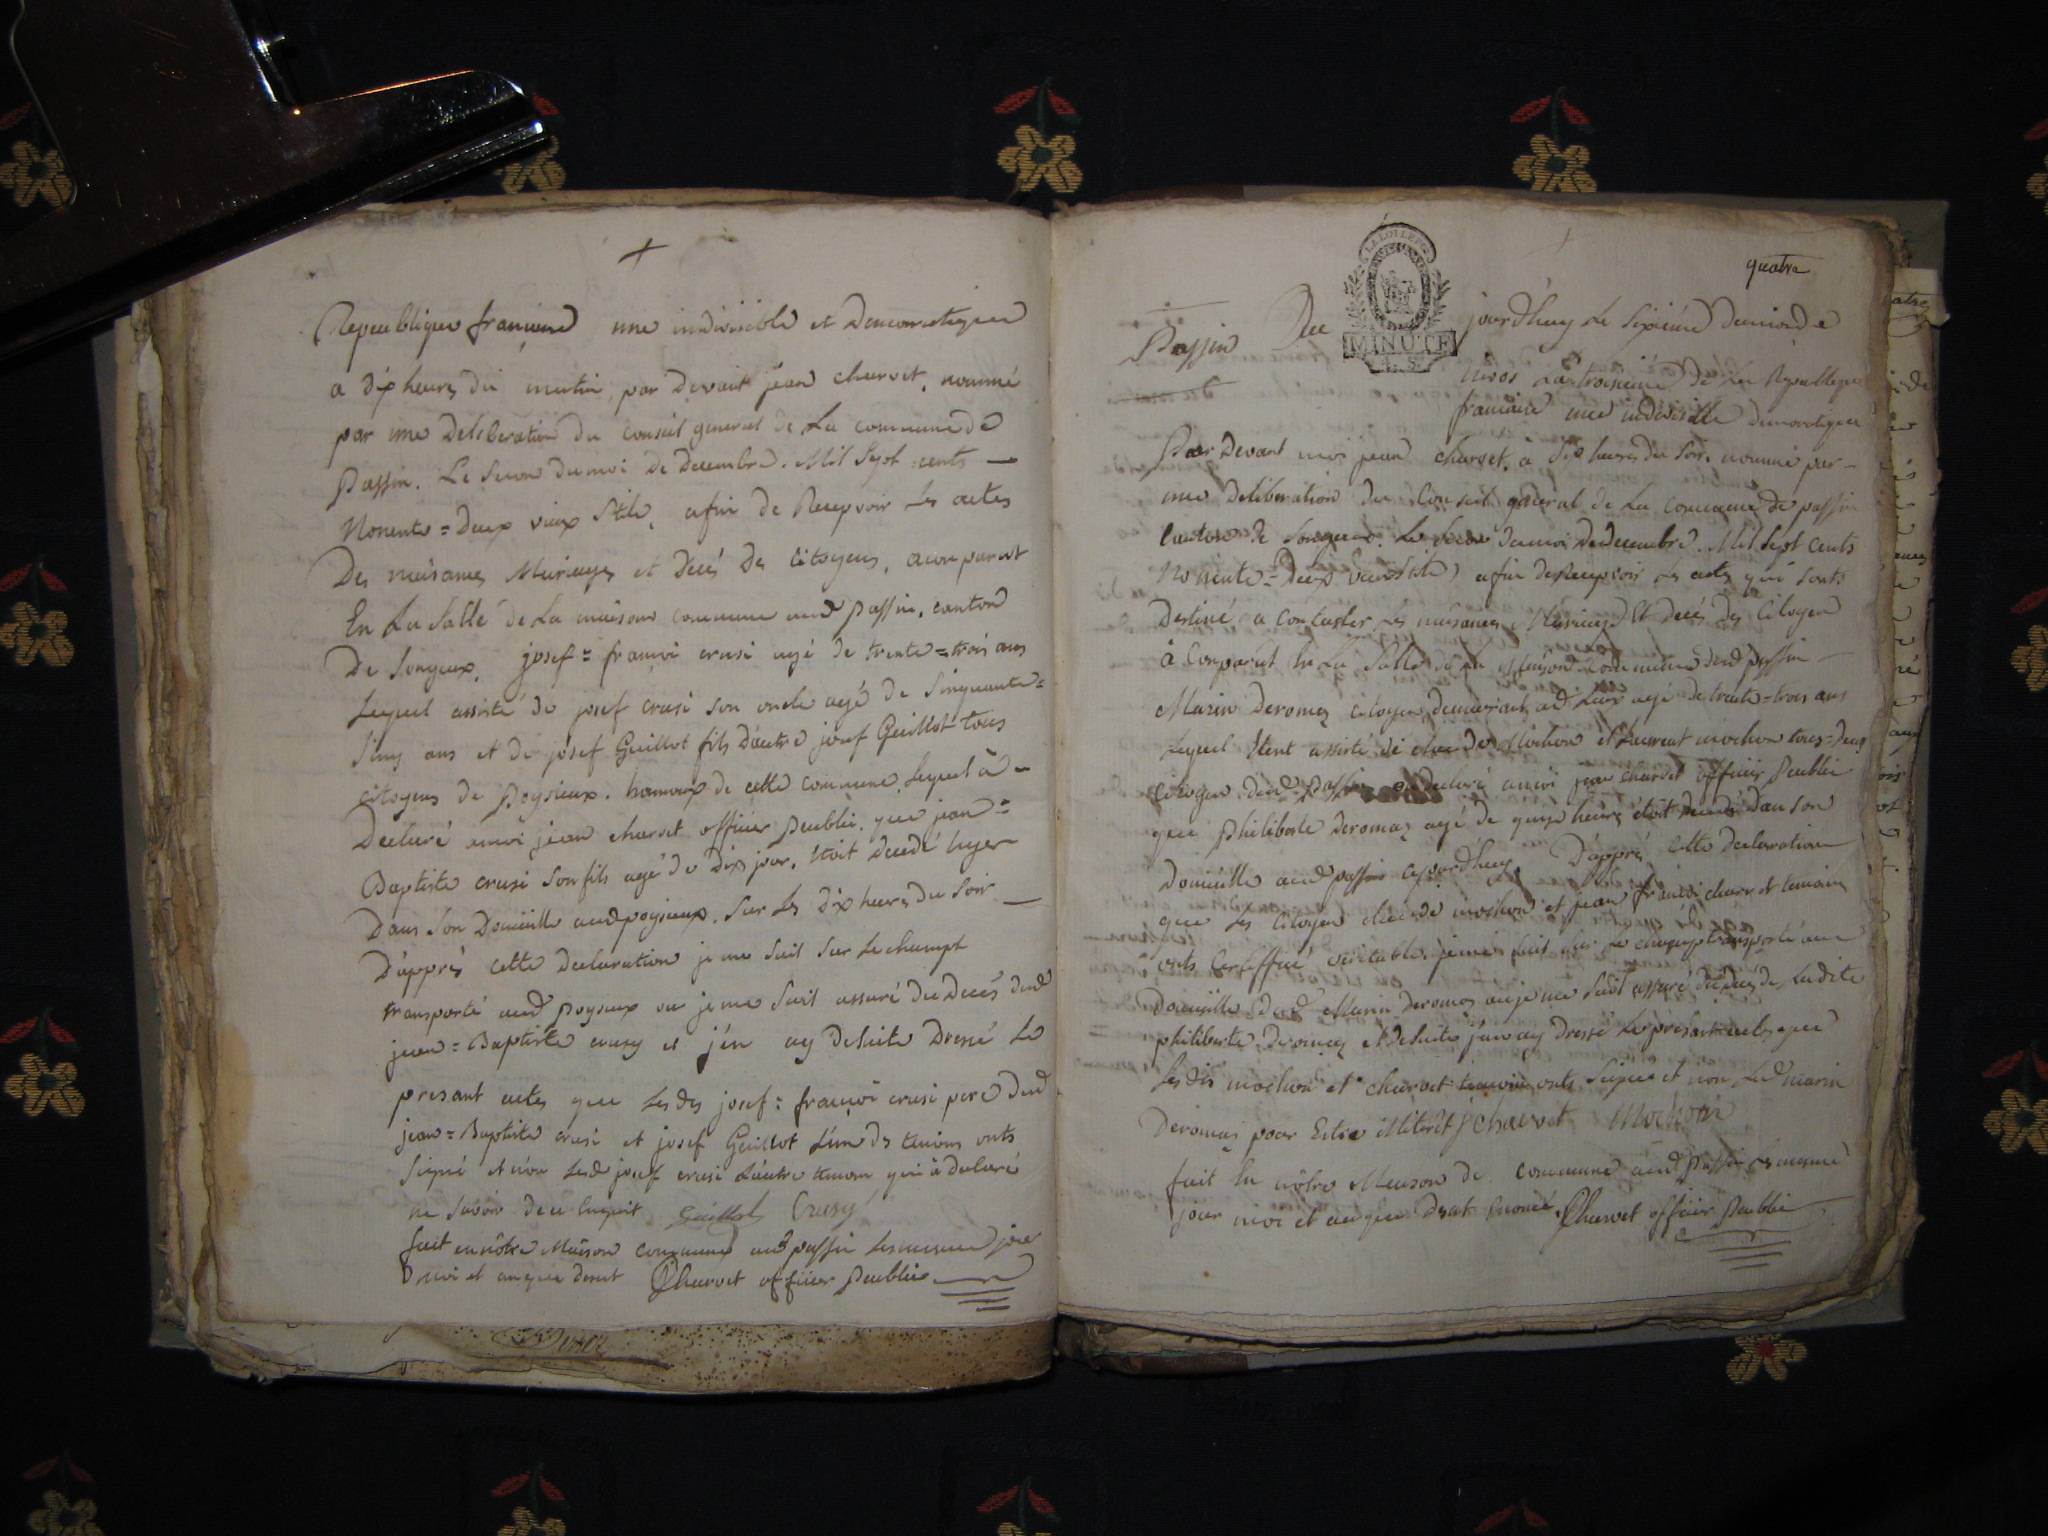 Republique françoise une indivisible et Democratique
a dix heures du matin, par devant jean charvet, nommé
par une Deliberation du Conseil general de La commune de
Passin. Le Segon du moi de decembre. Mil Sept cents
Nonente = Deux vieux Stile, afin de Recepvoir Les actes
Des naisances Mariages et Decés Des Citoyens, a comparut
En La Salle de La maison commune aud passin, canton
De Songeux, josef = françoi crusi agé de trente = trois ans
Lequel assisté de josef crusi son oncle agé de Sinquante =
Sinq ans et de josef Guillot fils D'autre josef Guillot tous
citoyens de poysieux. hameaux de cette commune, Lequel à
Declaré amoi jean charvet officier Publi. que jean =
Baptiste crusi son fils agé de Dix jour, Etoit Decedé hyer
Dans Son Domicille aud poysieux. Sur Les Dix heures du Soir
D'apprés cette declaration je me Suit Sur Le champt
transporté aud poysieux ou je me Suit assuré du Decés dud
jean = Baptiste crusy et j'en ay De Suite Dressé Le
presant actes que Lesdis josef = françoi crusi pere dud
jean = Baptiste crusi et josef Guillot L'un ds temoins onts
Signé et non Led josef crusi L'autre temoin qui à declaré
ne Savoir de ce Enquit Guillot Crusy
fait en nôtre Maison commune aud passin Les meme jour
moi et anque desut Charvet officier Publi
quatre
LA LOI LE
MINUTE
Passin Du jourd'huy Le Sixieme du mois de
Nivos La troisieme de La Republique
francaise une indivisible democratique
Par Devant moi jean charvet, à Six heures du Soir. nommé par
une deliberation du Conseil general de La commune de passin
Canton de Songeux. Le Segon du moi De decembre. Mil Sept Cents
Nonente = Deux vieux Stile, afin de Recepvoir Les actes qui Sonts
Destiné a Contaster Les naisances Mariages Et decés des Citoyen
à Comparut En La Salle de La Maison Commune dud passin
Marin Deromas citoyen demeurant aud Lieu agé de trante = trois ans
Lequel Etent assisté de Mochon et Laurent mochon tous = deux
citoyen dud passin a declaré a moi jean charvet officier Publi
que philiberte deromas agé de quinze heures étoit decedé dans son
Domicille aud passin aujourdhuy, D'apprés cette declaration
que Les Citoyen mochon et jean françoi charvet temoins
onts Certiffié veritable. je me Suit Sur Le champ transporté au
Domicille dud Marin deromas ou je me Suit assuré du decés de Ladite
philiberte deromas et de Suite j'en ay Dressé Le presant actes que
Lesdis mochon et charvet temoins onts Signé et non Led marin
Deromas pour Estre illiteré J charvet Mochon
fait En nôtre Maison de commune aud Passin Les meme
jour moi et anque desut enoncé. Charvet officier Publi